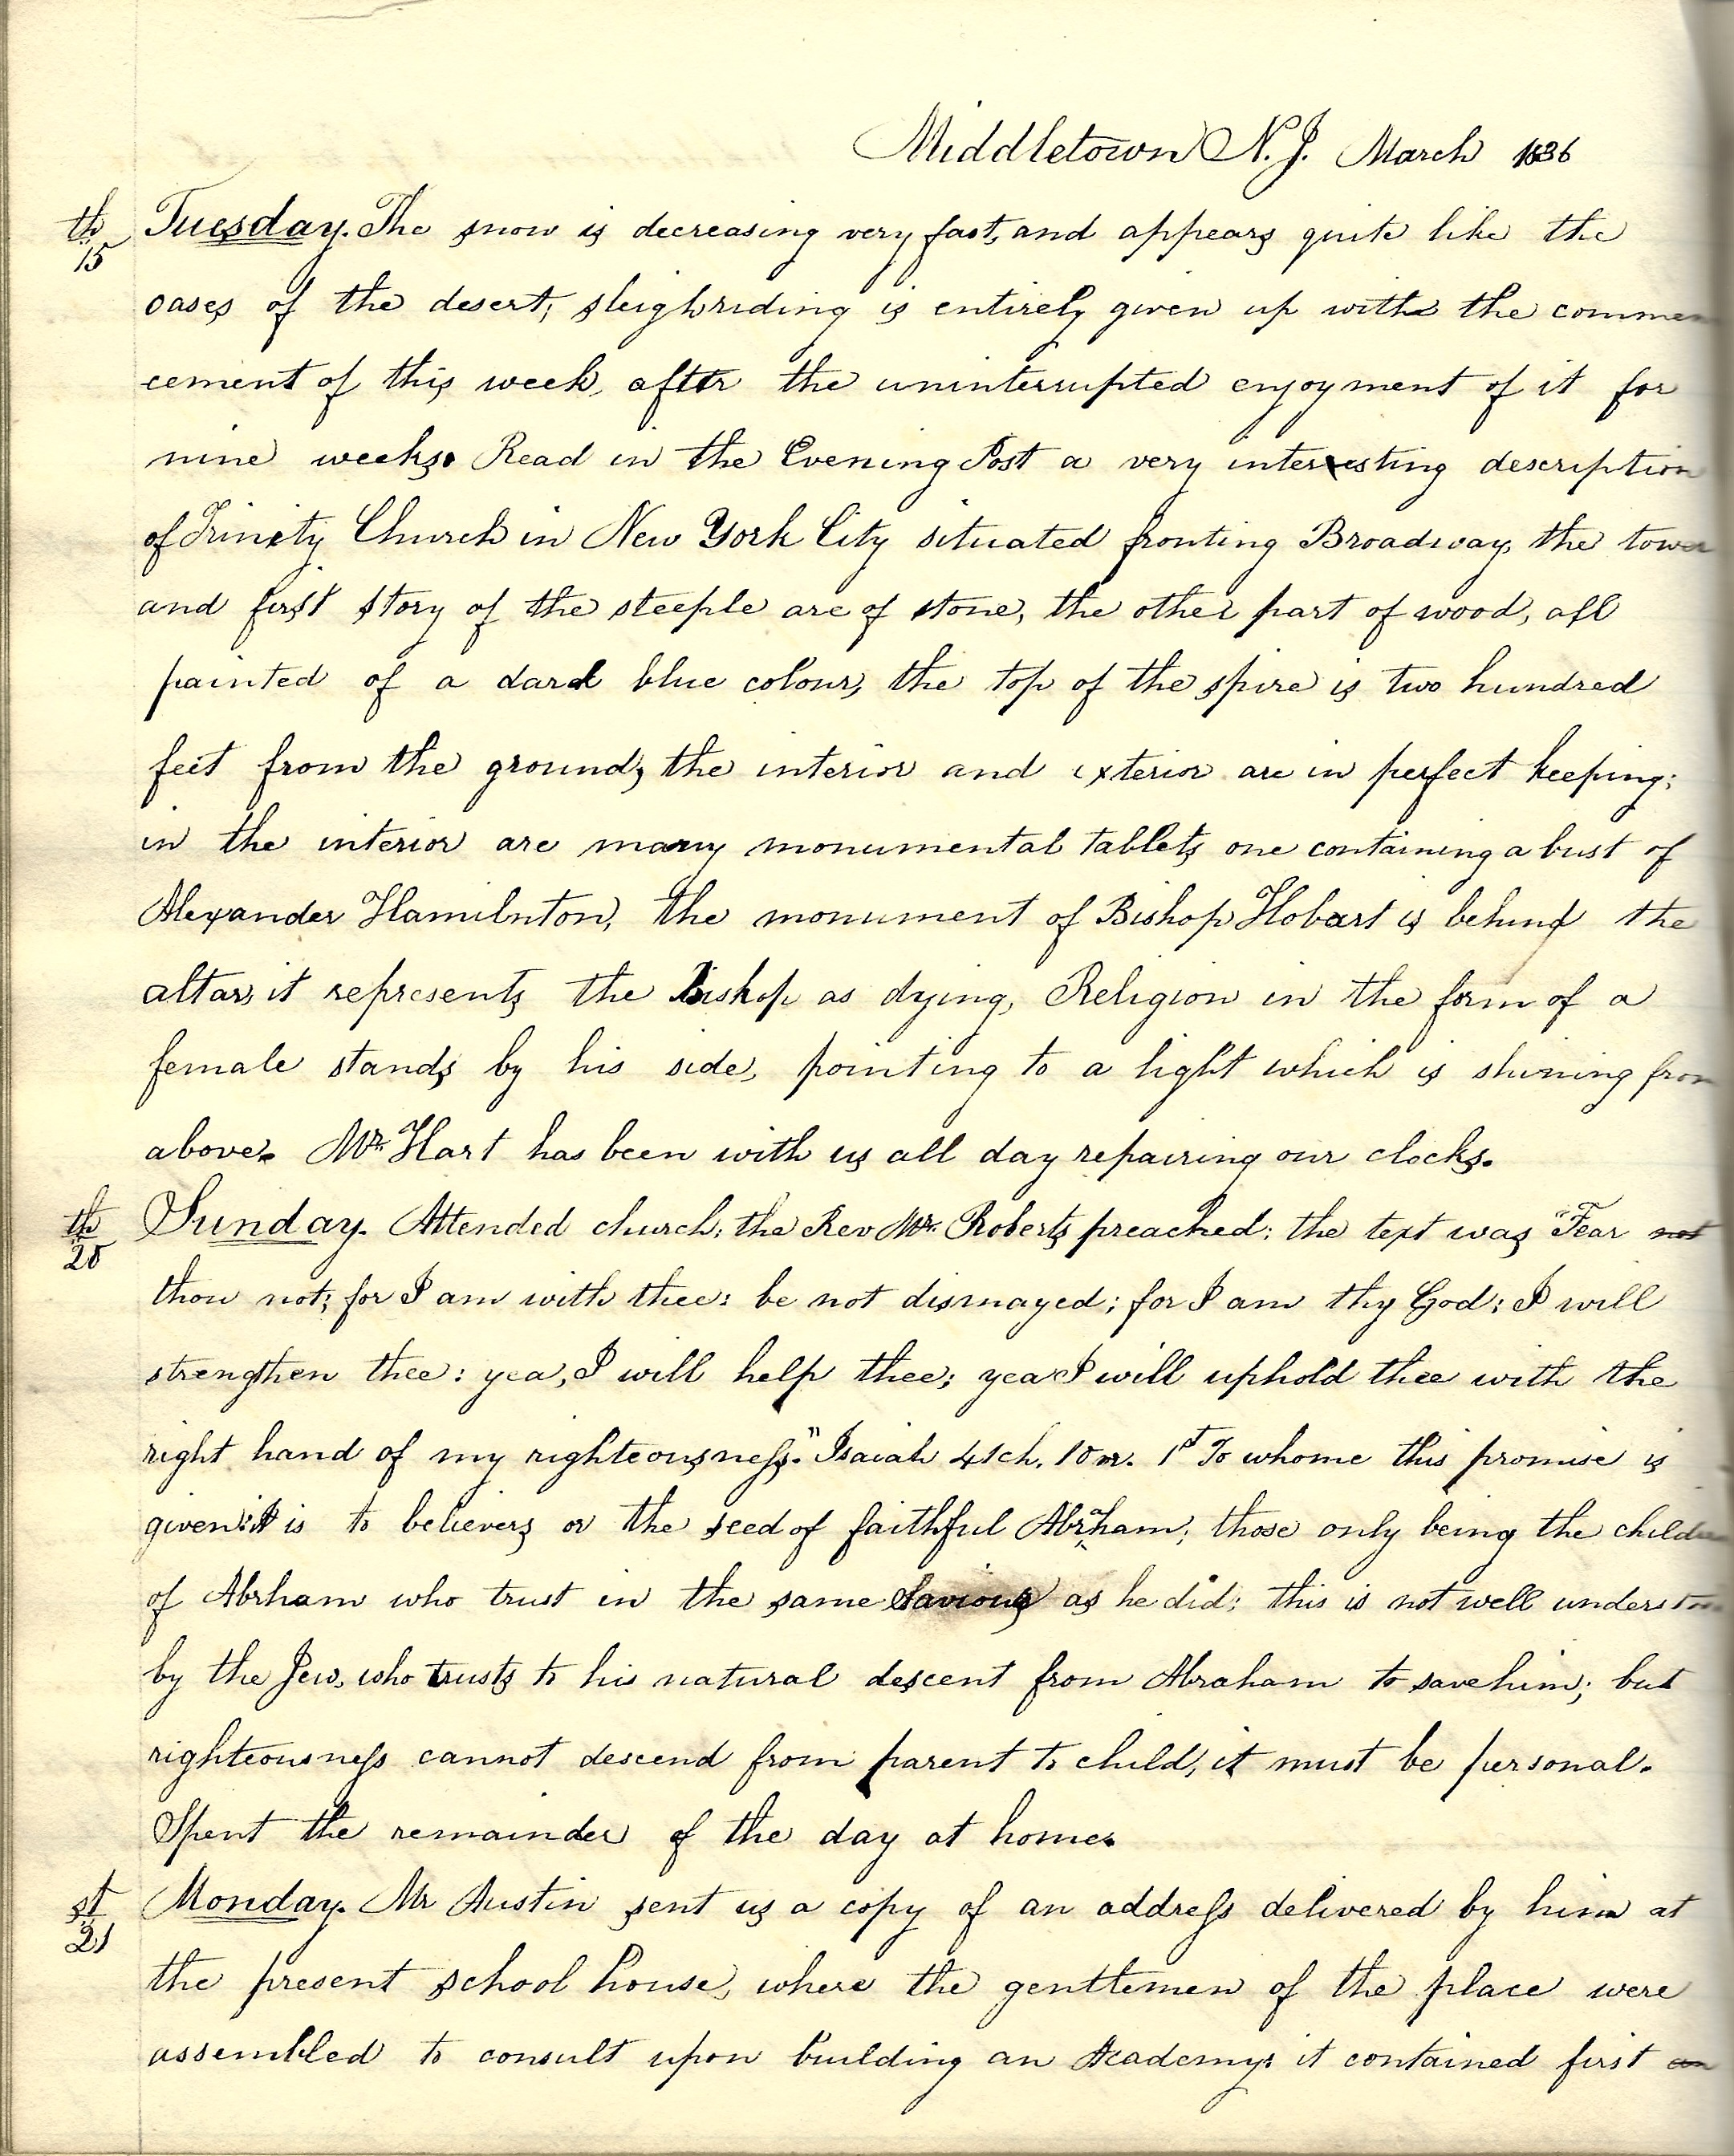 Middletown N.J. March 1836
th
15
Tuesday. The snow is decreasing very fast, and appears quite like the
oases of the desert; sleighriding is entirely given up with the commen
cement of this week, after the uninterrupted enjoyment of it for
nine weeks. Read in the Evening Post a very interesting description
of Trinity Church in New York City situated fronting Broadway, the tower
and first story of the steeple are of stone, the other part of wood, all
painted of a dark blue colour, the top of the spire is two hundred
feet from the ground; the interior and exterior are in perfect keeping;
in the interior are many monumental tablets one containing a bust of
Alexander Hamilnton, the monument of Bishop Hobart is behind the
altar, it represents the bishop as dying, Religion in the form of a
female stands by his side, pointing to a light which is shining from
above. Mr. Hart has been with us all day repairing our clocks.
th
20
Sunday. Attended church; the Rev Mr. Roberts preached; the text was "Fear not
thou not; for I am with thee: be not dismayed; for I am thy God; I will
strengthen thee: yea, I will help thee; yea I will uphold thee with the
right hand of my righteousness." Isaiah 41ch. 10 v. 1st To whome this promise is
given: it is to believers or the seed of faithful Abraham; those only being the children
of Abrham who trust in the same Saviour as he did; this is not well understood
by the Jew, who trusts to his natural descent from Abraham to save him; but
righteousness cannot descend from parent to child, it must be personal.
Spent the remainder of the day at home.
st
21
Monday. Mr Austin sent us a copy of an address delivered by him at
the present school house, where the gentlemen of the place were
assembled to consult upon building an Academy; it contained first an